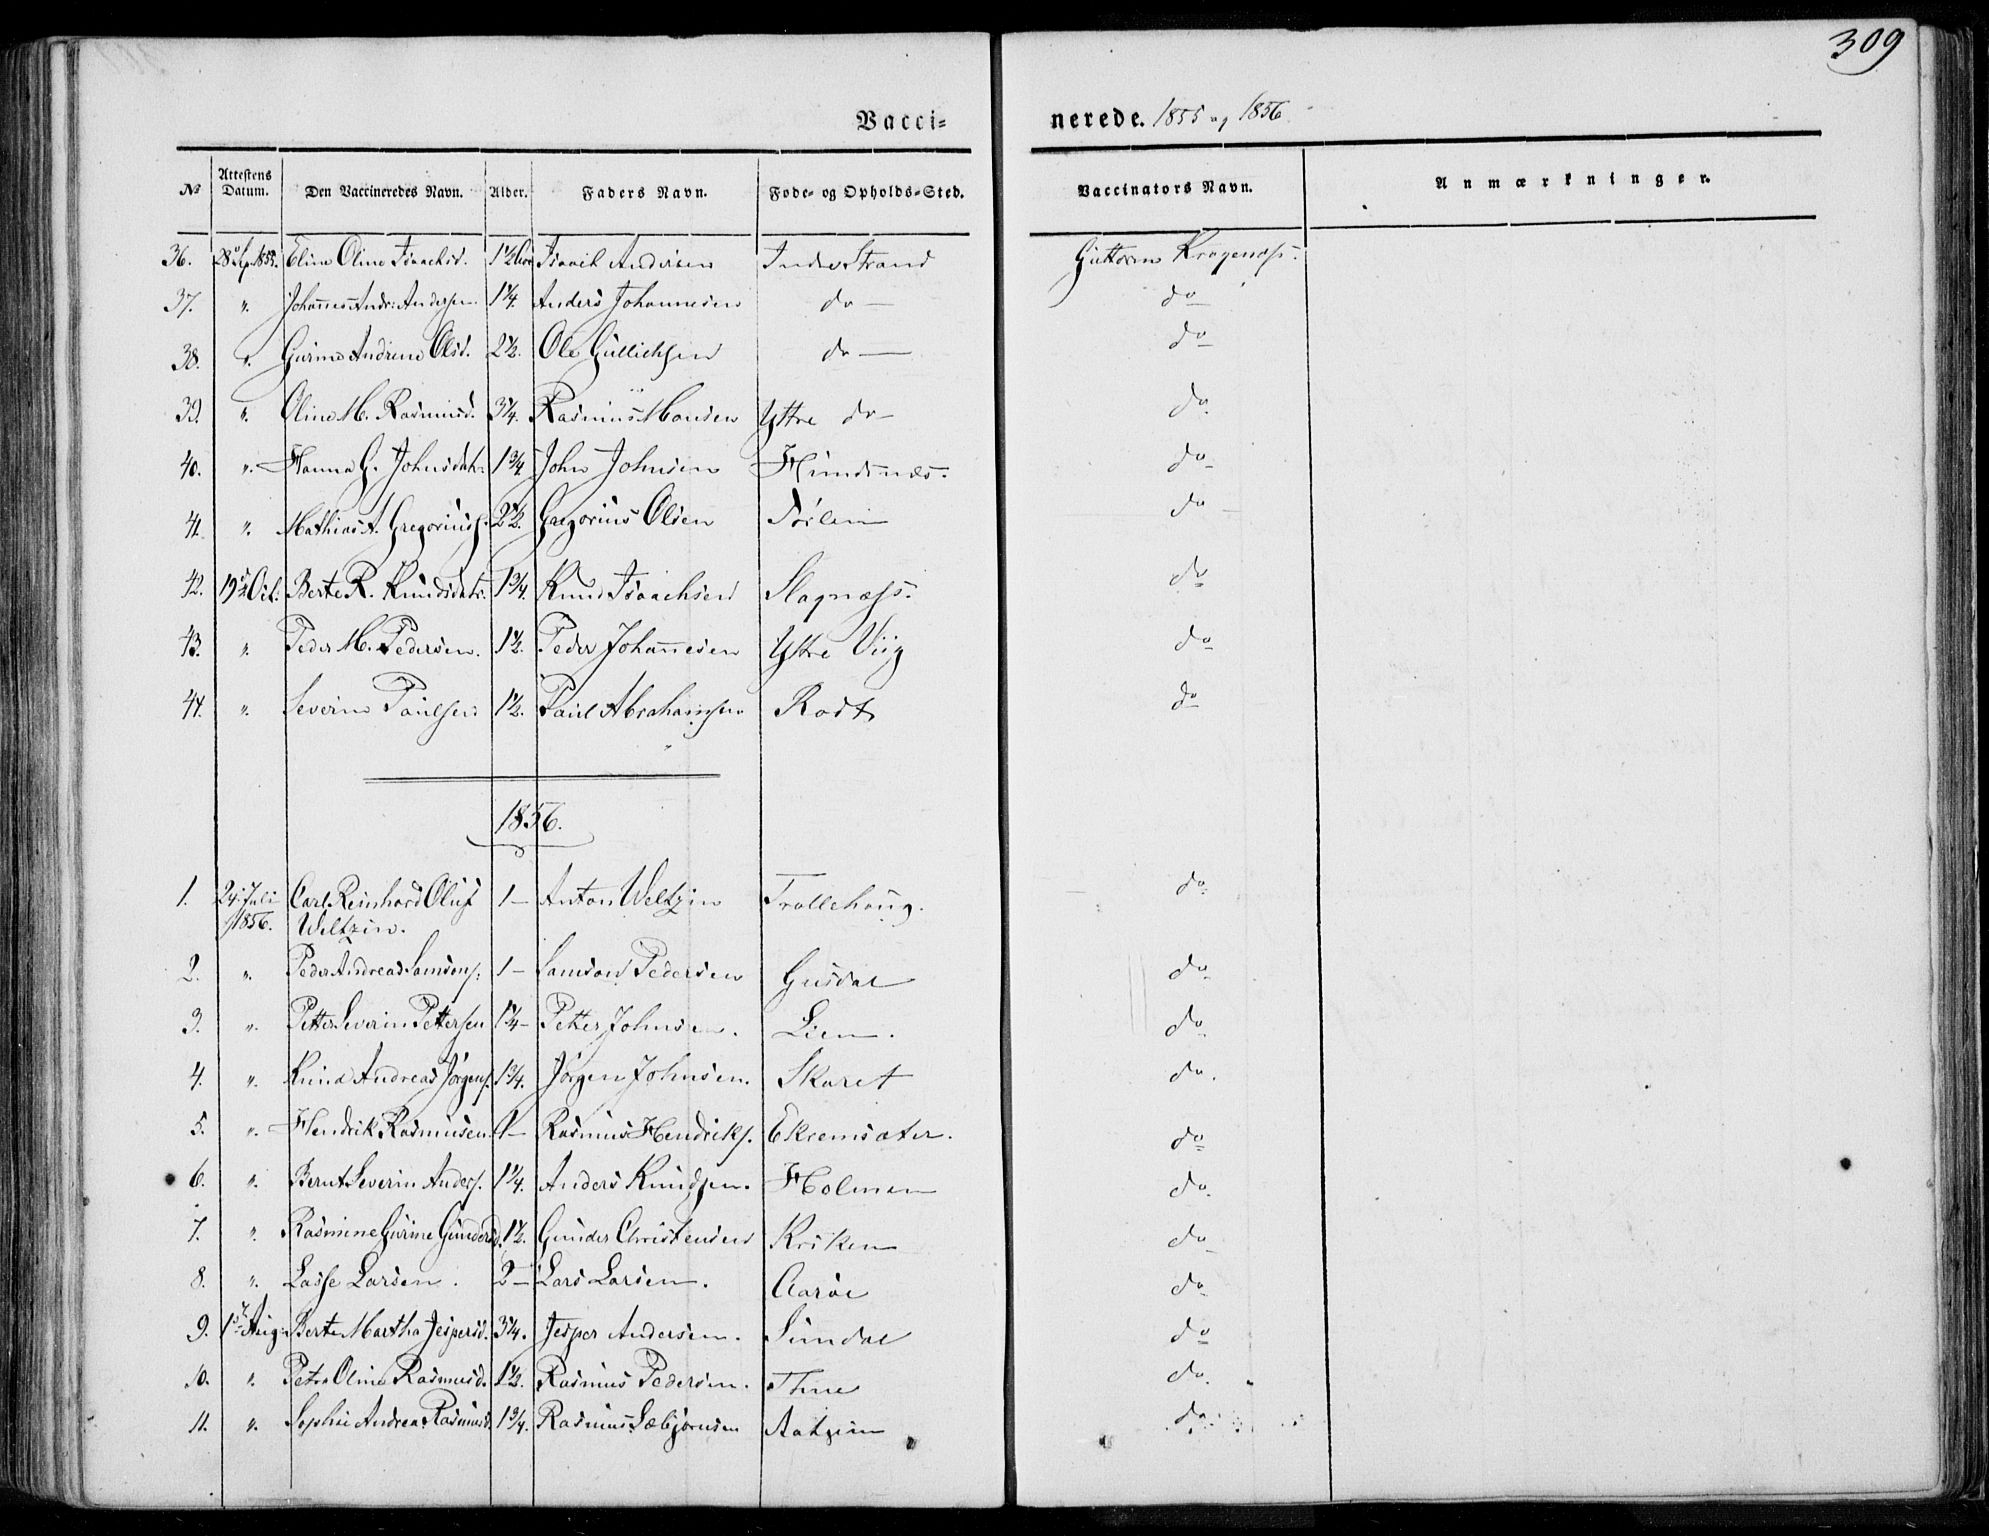 309
Vacci- nerede. 1855 og 1856
No Attestens Datum. Den Vaccineredes Navn. Alder. Faders Navn. Føde- og Opholds-Sted. Vaccinators Navn. Anmærkninger.
36. 28 Sep. 1855. Eline Oline Isaachsd. 1 1/2 Isaach Andersen Indre Strand Guttorm Kragenæss.
37. ". Johannes Andr: Andersen. 1 1/4. Anders Johannesen do — do
38. ". Gurine Andrine Olsd. 2 1/2. Ole Gullichsen do — do
39. ". Oline M. Rasmusd. 3 1/4. Rasmus Monsen Yttre do – do
40. ". Hanna G. Johnsdatr. 1 3/4 John Johnsen Hundsnæs. do
41. ". Mathias A. Gregoriuss. 2 1/2. Gregorius Olsen do
42. 19de Oct: Berte R. Knudsdatr. 1 3/4. Knud Isaachsen Slagnæss. do
43. ". Peder M. Pedersen. 1 1/2. Peder Johannesen Yttre Viig do
44. ". Severin Paulsen 1 1/2. Paul Abrahamsen Rodt do
1856.
1. 24. Juli Carl Reinhard Oluf 1 – Anton Weltzin Trollehaug. do
1856. Weltzin.
2. ". Peder Andreas Samsons. 1 – Samson Pedersen Gusdal do
3. ". Petter Severin Pettersen 1 1/4 – Petter Johnsen. Lien. do
4. ". Knud Andreas Jørgens. 1 3/4. Jørgen Johnsen. Skaret do.
5. ". Hendrik Rasmusen. 1 – Rasmus Hendriks. Ekremsæter. do
6. ". Bernt Severin Anders. 1 1/4. Anders Knudsen. Holmen do.
7. ". Rasmine Gurine Gundersd. 1 1/2. Gunder Christensen Kriken do
8. ". Lasse Larsen. 2 – Lars Larsen. Aarøe do
9. 1ste Aug: Berte Martha Jespersd. 3 1/4. Jesper Andersen. Sundal do
10. ". Petra Oline Rasmusd. 1 1/2. Rasmus Pedersen. Thue do.
11. ". Sophie Andrea Rasmusd. 1 3/4. Rasmus Sæbjørnsen do